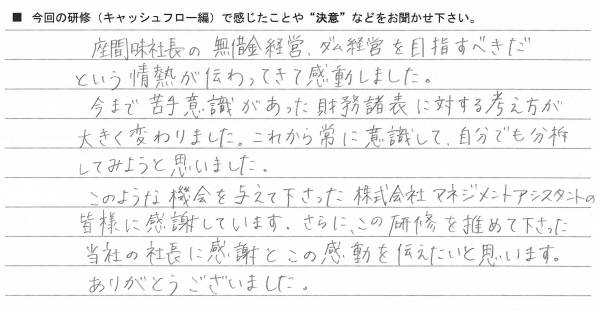 ■ 今回の研修（キャッシュフロー編）で感じたことや“決意”などをお聞かせ下さい。
座間味社長の無借金経営、ダム経営を目指すべきだ
という情熱が伝わってきて感動しました。
今まで苦手意識があった財務諸表に対する考え方が
大きく変わりました。これから常に意識して、自分でも分析
してみようと思いました。
このような機会を与えて下さった株式会社マネジメントアシスタントの
皆様に感謝しています。さらに、この研修を推めて下さった
当社の社長に感謝とこの感動を伝えたいと思います。
ありがとうございました。